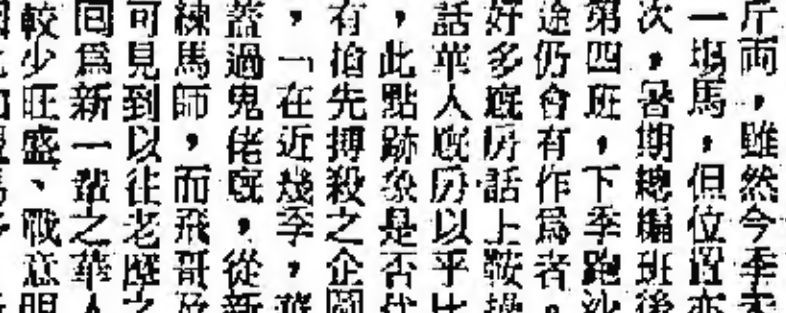 斤兩，雖然今季未
一場馬，但位置亦
次，暑期總編班後
第四班，下季跑沙
途仍會有作爲者。
好多嘅房話上鞍操
話華人嘅房以乎比
，此點跡象是否代
有搶先搏殺之企圖
，「在近幾季，華
蓋過鬼佬嘅，從新
練馬師，而飛哥及
可見到以往老歷之
囘爲新一輩之華人
較少旺盛、戰意明